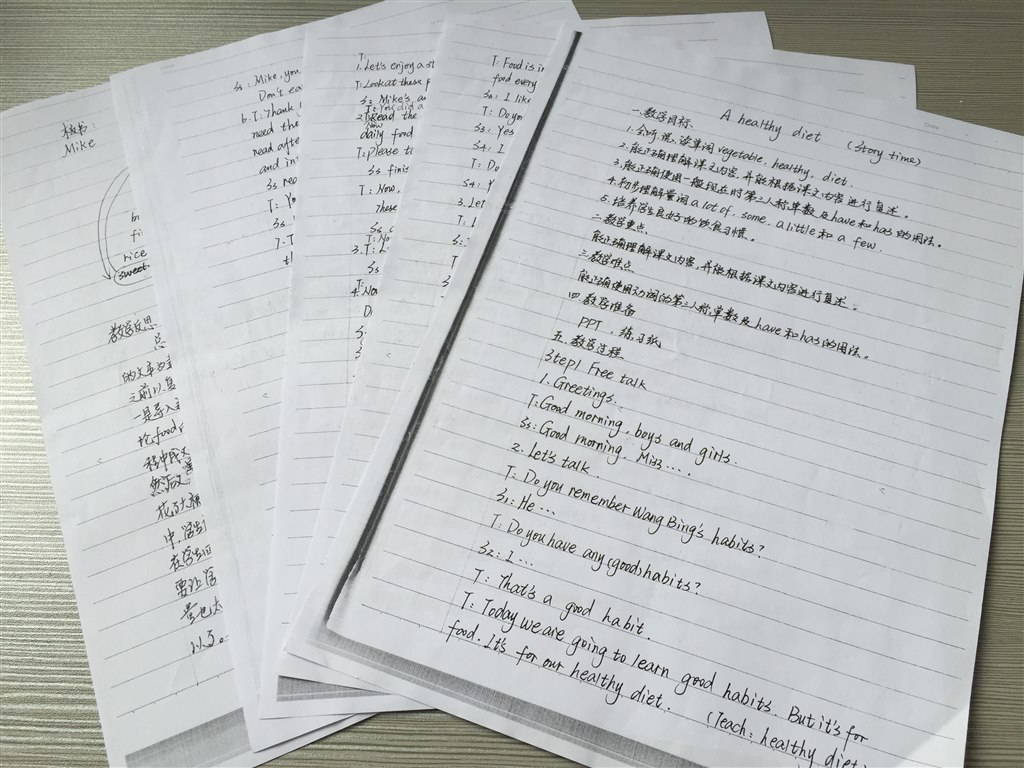 A healthy diet (Story time)
一.教学目标
1.会听、说、读单词vegetable, healthy, diet.
2.能正确理解课文内容,并能根据课文内容进行复述。
3.能正确使用一般现在时第三人称单数及have和has的用法。
4.初步理解量词a lot of, some, a little和a few.
5.培养学生良好的饮食习惯。
二.教学重点
能正确理解课文内容,并能根据课文内容进行复述。
三.教学难点
能正确使用动词的第三人称单数及have和has的用法。
四.教学准备
PPT,练习纸
五.教学过程
Step1 Free talk
1. Greetings.
T: Good morning, boys and girls.
Ss: Good morning, Miss....
2. Let's talk.
T: Do you remember Wang Bing's habits?
S1: He ...
T: Do you have any (good) habits?
S2: I ...
T: That's a good habit.
T: Today we are going to learn good habits. But it's for
food. It's for our healthy diet. (Teach: healthy diet)
T: Food is in
food every
Ss: I like
T: Do you
Ss: Yes
T: I
S4: I
T: Do
S4: Y
3. Let
T: I
1. Let's enjoy a st
T: Look at these p
Ss: Mike's an
T: You did a
2. Read the
daily food
T: please to
Ss finis
T: Now,
these
T: No
3. T: L
Ss
4. Now
Ss: Mike, you
Don't ea
6. T: Thank
need the
read after
and in
Ss rea
T: Yo
Ss
7. T:
th
板书:
Mike
rice
sweet
教学反思
的文章的主
之前以复
一是导入主
论food,
程中成
然后文
花了大幅
中,学到
在学生回
要让学
量也太
以了。